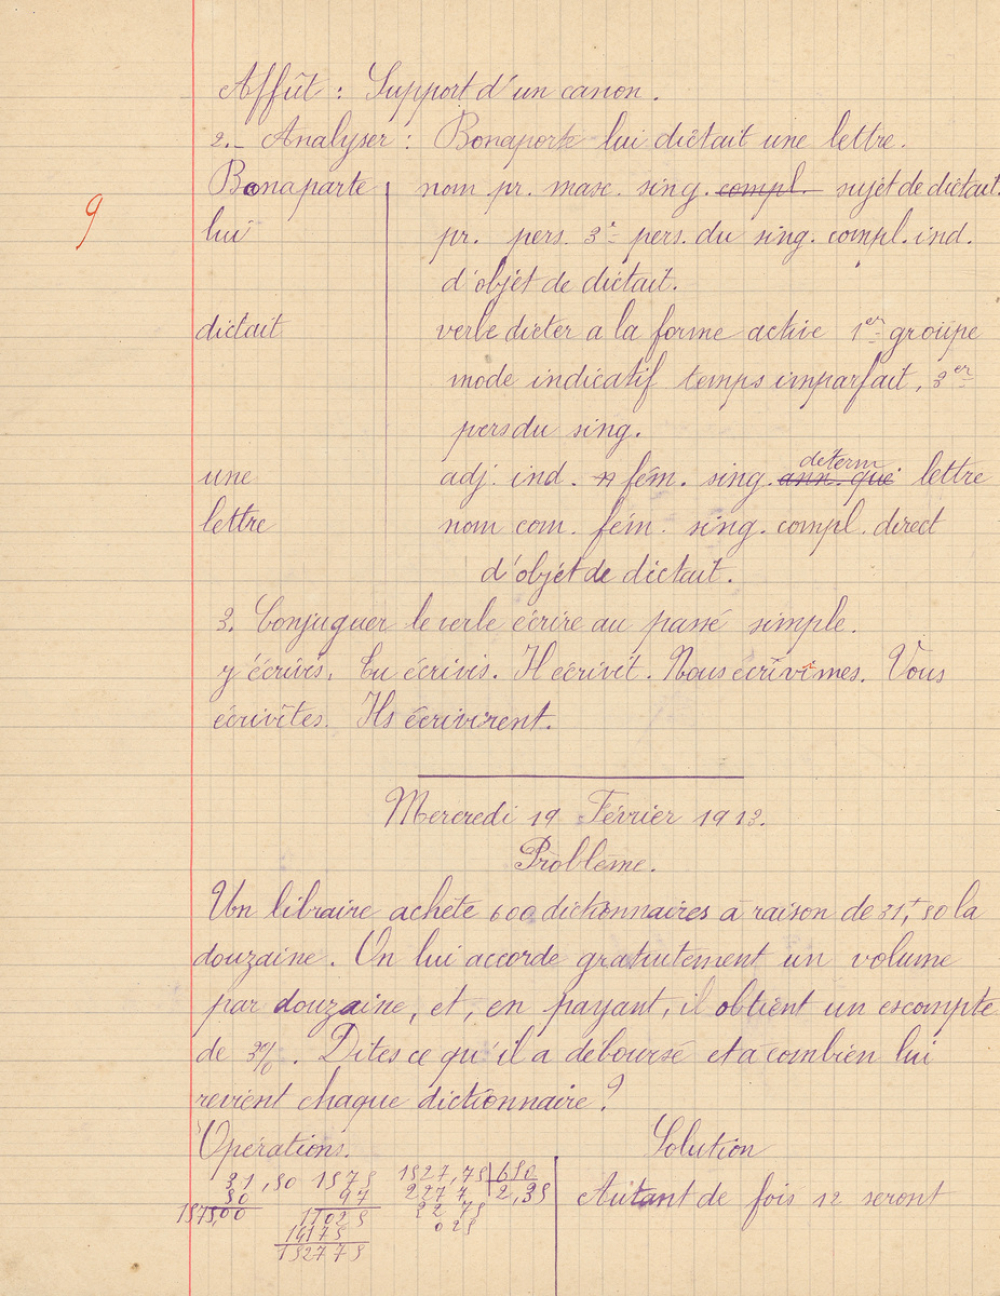 Affût : Support d'un canon.
2.- Analyser : Bonaparte lui dictait une lettre.
Bonaparte nom pr. masc. sing. compl. sujet de dictait.
9
lui pr. pers. 3e pers. du sing. compl. ind.
d'objet de dictait.
dictait verbe dicter a la forme active 1er groupe
mode indicatif temps imparfait, 3er
pers du sing.
determ
une adj. ind. n fém. sing. ann. que lettre
lettre nom com. fém. sing. compl. direct
d'objet de dictait.
3. Conjuguer le verbe écrire au passé simple.
J'écrivis. Tu écrivis. Il écrivit. Nous écrivîmes. Vous
écrivîtes. Ils écrivirent.
Mercredi 19 Février 1913.
Problème.
Un libraire achète 600 dictionnaires à raison de 31f,50 la
douzaine. On lui accorde gratuitement un volume
par douzaine, et, en payant, il obtient un escompte
de 3%. Dites ce qu'il a déboursé et à combien lui
revient chaque dictionnaire ?
Opérations. Solution
31,50 1575 1527,75 650
50 97 227 7 2,35
1575,00 11025 32 75 Autant de fois 12 seront
14175 025
152775